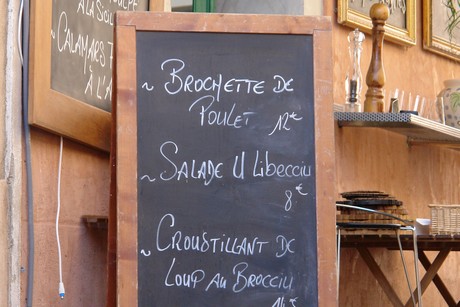 À LA SICIL
CALAMARS
À L'A
~ BROCHETTE DE
POULET 12€
~ SALADE U LIBECCIU
8€
~ CROUSTILLANT DE
LOUP AU BROCCIU
14€